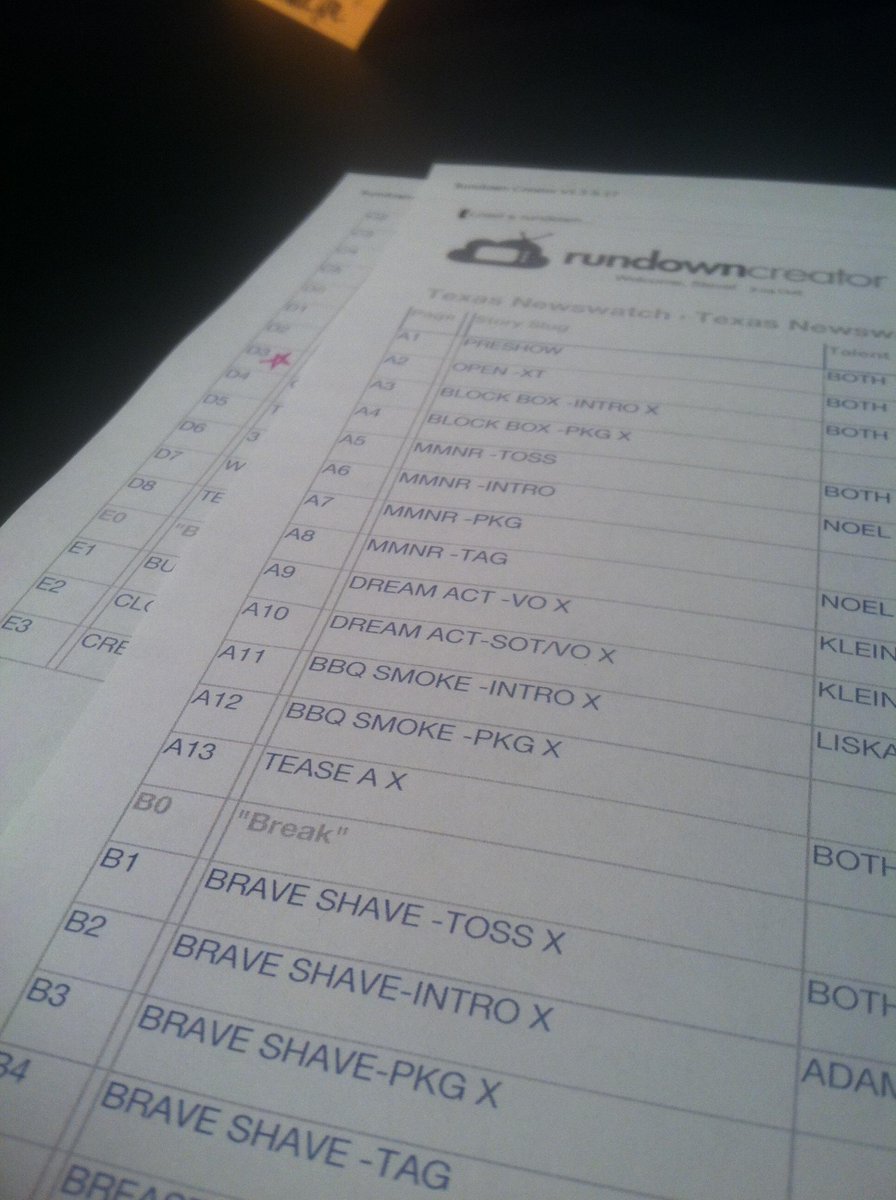 rundowncreator
Texas Newswatch - Texas Newsw
Page Story Slug Talent
A1 PRESHOW BOTH
A2 OPEN -XT BOTH
A3 BLOCK BOX -INTRO X BOTH
A4 BLOCK BOX -PKG X
A5 MMNR -TOSS BOTH
A6 MMNR -INTRO NOEL
A7 MMNR -PKG
A8 MMNR -TAG NOEL
A9 DREAM ACT -VO X KLEIN
A10 DREAM ACT-SOT/VO X KLEIN
A11 BBQ SMOKE -INTRO X LISKA
A12 BBQ SMOKE -PKG X
A13 TEASE A X BOTH
B0 "Break"
B1 BRAVE SHAVE -TOSS X BOTH
B2 BRAVE SHAVE-INTRO X ADAM
B3 BRAVE SHAVE-PKG X
B4 BRAVE SHAVE -TAG
D1
D2
D3
D4
D5 T
D6 3
D7 W
D8 TE
E0 "B
E1 BU
E2 CLO
E3 CRE